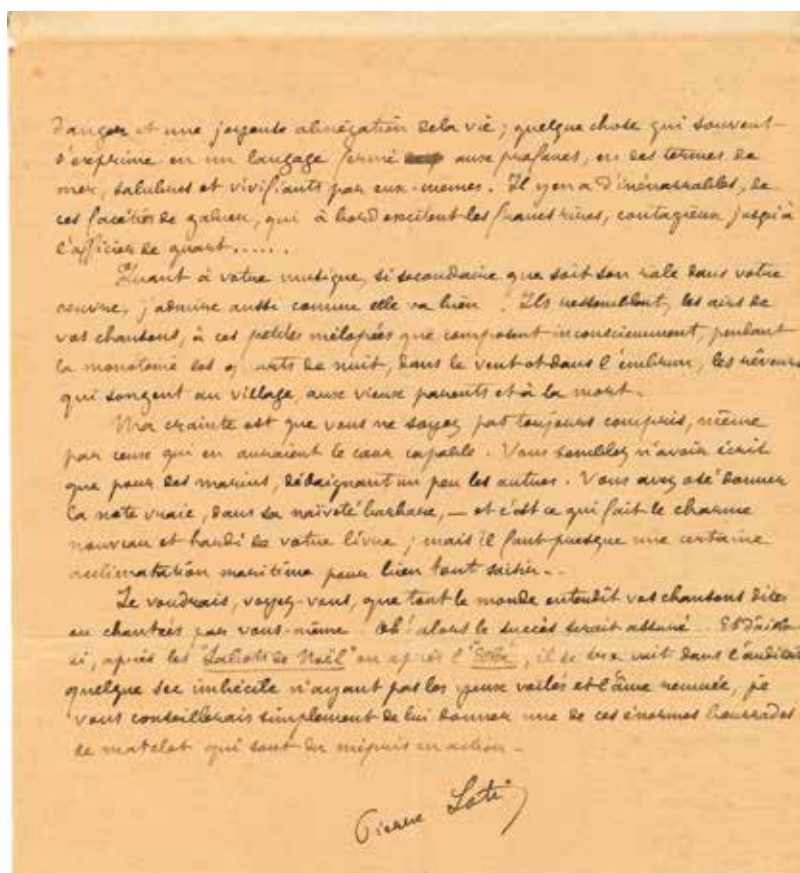 danger et une joyeuse abnégation de la vie ; quelque chose qui souvent
s'exprime en un langage fermé aux profanes, en des termes de
mer, salubres et vivifiants par eux-mêmes. Il y en a d'inénarrables, de
ces facéties de gabier, qui à bord excitent les francs rires, contagieux jusqu'à
l'officier de quart.....
Quant à votre musique, si secondaire que soit son rôle dans votre
oeuvre, j'admire aussi comme elle va bien ! Ils ressemblent, les airs de
vos chansons, à ces petites mélopées que composent inconsciemment, pendant
la monotonie des quarts de nuit, dans le vent et dans l'embrun, les rêveurs
qui songent au village, aux vieux parents et à la mort.
Ma crainte est que vous ne soyez pas toujours compris, même
par ceux qui en auraient le coeur capable. Vous semblez n'avoir écrit
que pour des marins, dédaignant un peu les autres. Vous avez osé donner
la note vraie, dans sa naïveté barbare, — et c'est ce qui fait le charme
nouveau et hardi de votre livre ; mais il faut presque une certaine
acclimatation maritime pour bien tout saisir..
Je voudrais, voyez-vous, que tout le monde entendît vos chansons dites
ou chantées par vous-même. Oh ! alors le succès serait assuré. Et
si, après les "Sabots de Noël" ou après l' , il se trouvait dans l'auditoire
quelque sec imbécile n'ayant pas les yeux voilés et l'âme remuée, je
vous conseillerais simplement de lui donner une de ces énormes bourrades
de matelot qui sont du mépris en action.
Pierre Loti